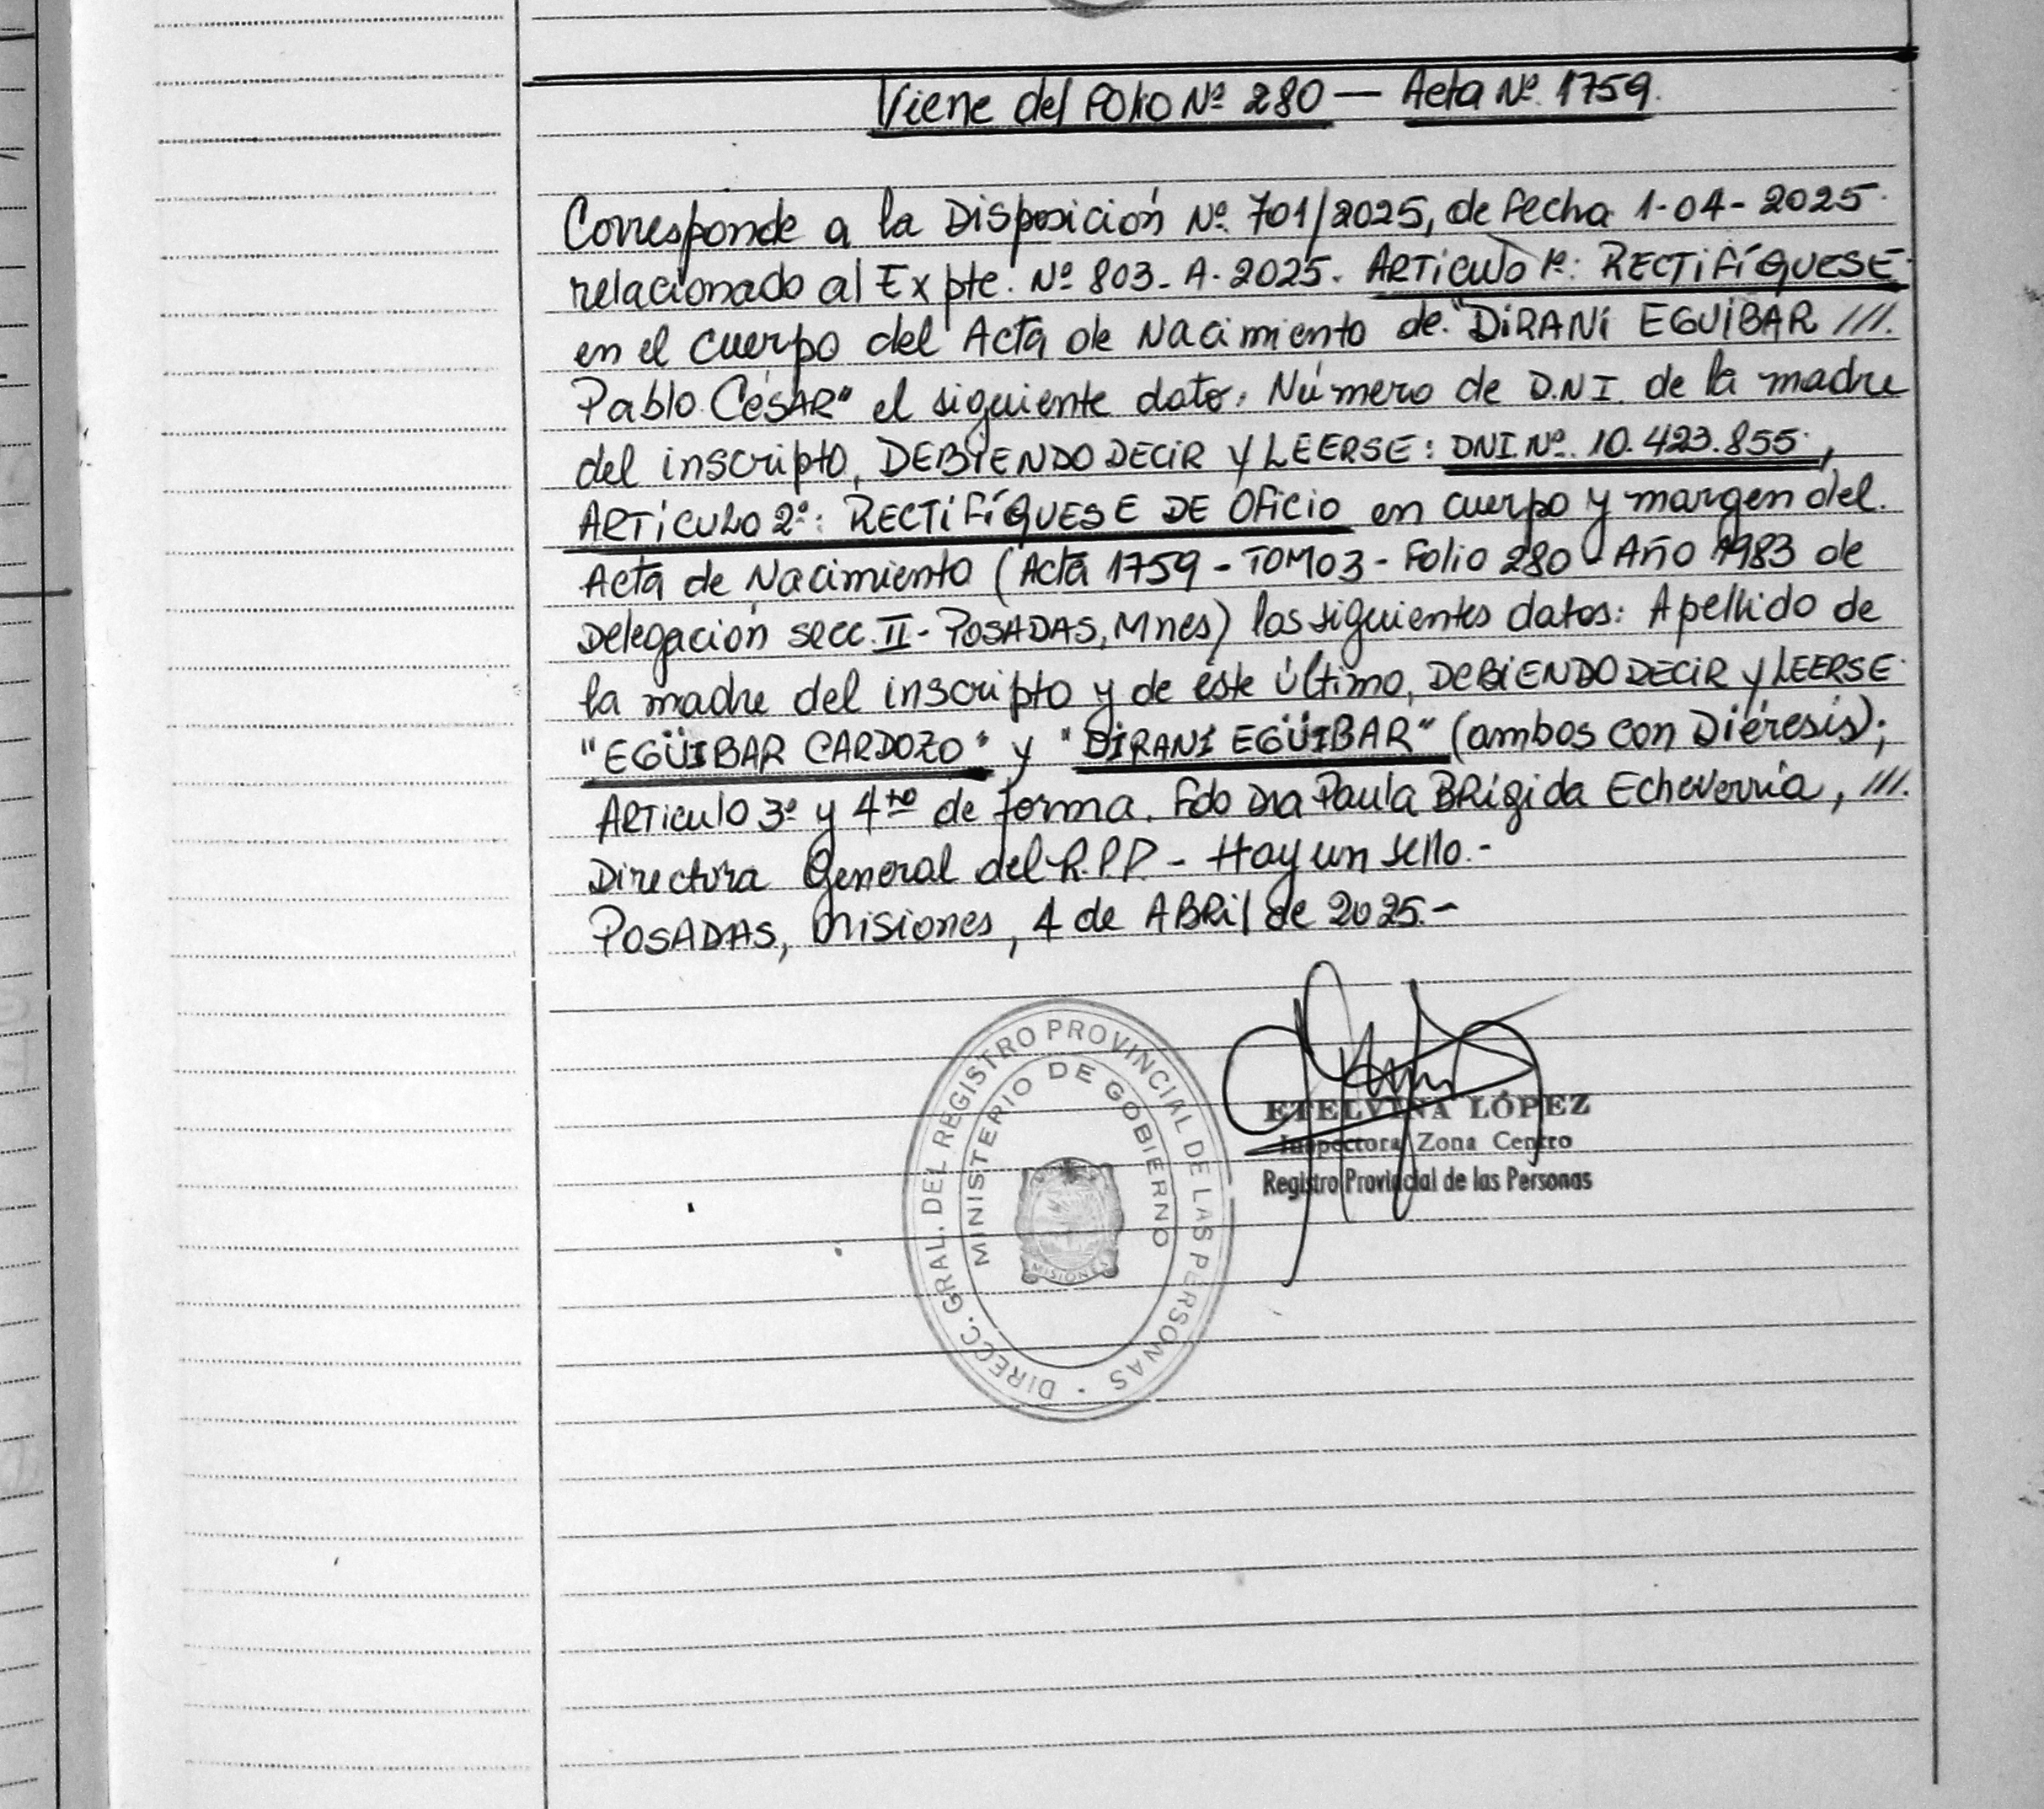 Viene del Folio Nº 280 — Acta Nº 1759.
Corresponde a la Disposición Nº 701/2025, de fecha 1-04-2025.
relacionado al Expte. Nº 803-A-2025. ARTiculo 1º: RECTiFíQUESE
en el cuerpo del Acta de Nacimiento de "DiRANi EGUiBAR ///.
Pablo CéSAR" el siguiente dato: Número de D.N.I. de la madre
del inscripto, DEBIENDO DECiR y LEERSE: DNI Nº. 10.423.855,
ARTíCULO 2º: RECTiFíQUESE DE OFiCiO en cuerpo y margen del.
Acta de Nacimiento (Acta 1759 - TOMO 3 - Folio 280 - Año 1983 de
Delegación secc. II - POSADAS, Mnes) los siguientes datos: Apellido de
la madre del inscripto y de éste último, DEBiENDO DECiR y LEERSE
"EGÜIBAR CARDOZO" y "DIRANI EGÜIBAR" (ambos con Diéresis);
ARTiculo 3º y 4to de forma. Fdo Dra Paula BRígida Echeverría, ///.
Directora General del R.P.P. - Hay un sello.-
POSADAS, Misiones, 4 de ABRil de 2025.-
DIRECC. GRAL. DEL REGISTRO PROVINCIAL DE LAS PERSONAS
MINISTERIO DE GOBIERNO
MISIONES
ETELVINA LÓPEZ
Inspectora Zona Centro
Registro Provincial de las Personas